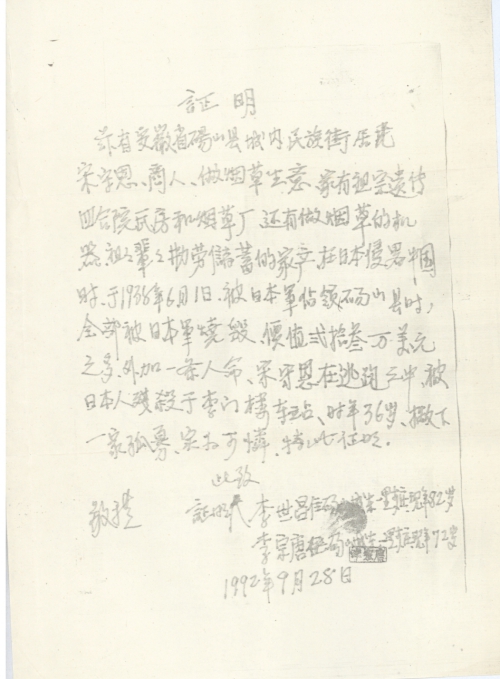 証明
兹有安徽省砀山县城内民族街居民
宋守恩、商人、做烟草生意、家有祖宗遗传
四合院瓦房和烟草厂还有做烟草的机
器祖祖辈辈勤劳储蓄的家产、在日本侵略中国
时、于1938年6月1日、被日本軍佔领砀山县时,
全部被日本軍燒毁、價值弍拾叁万美元
之多、外加一条人命、宋守恩在逃跑之中、被
日本人殘殺于李门楼车站、时年36岁、撇下
一家孤寡、实为可憐、特此证明。
此致
敬禮 証明人 李世昌住砀城 現年82岁
李宗唐 住砀城 現年72岁
1992年9月28日